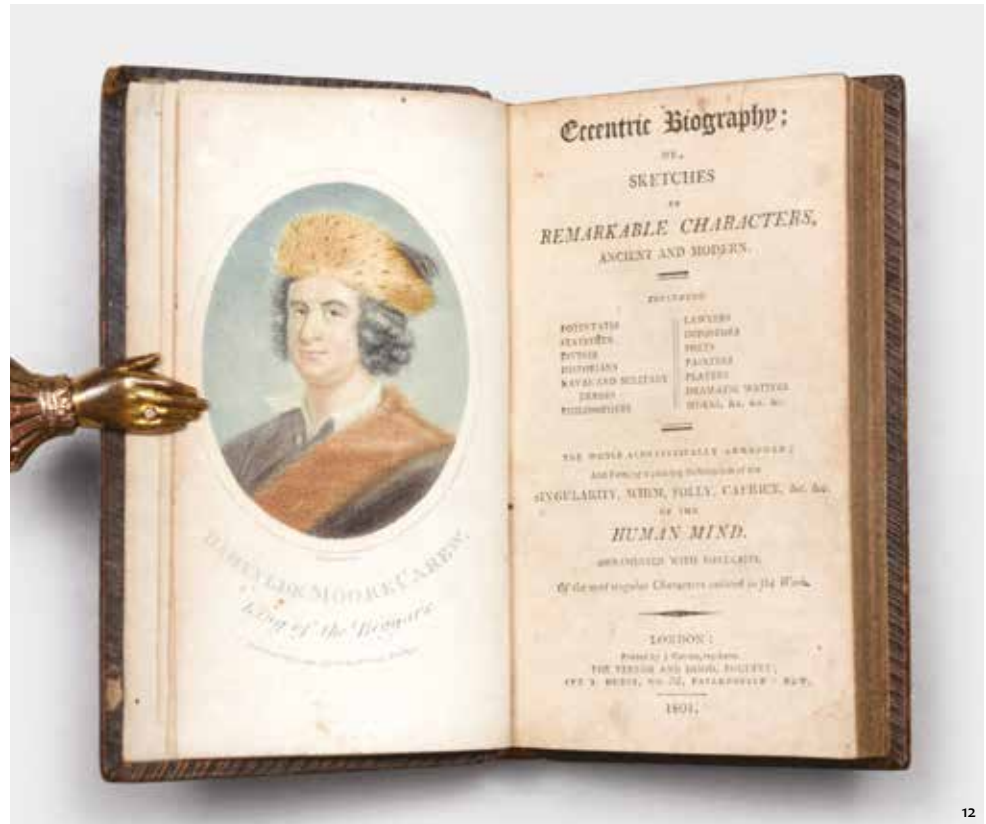 BAMFYLDE MOORE CAREW,
King of the Beggars
Eccentric Biography;
OR,
SKETCHES
OF
REMARKABLE CHARACTERS,
ANCIENT AND MODERN.
INCLUDING
POTENTATES
STATESMEN
DIVINES
HISTORIANS
NAVAL AND MILITARY
HEROES
PHILOSOPHERS
LAWYERS
IMPOSTORS
POETS
PAINTERS
PLAYERS
DRAMATIC WRITERS
MISERS, &c. &c. &c.
THE WHOLE ALPHABETICALLY ARRANGED;
And Forming a pleasing Delineation of the
SINGULARITY, WHIM, FOLLY, CAPRICE, &c. &c.
OF THE
HUMAN MIND.
ORNAMENTED WITH PORTRAITS,
Of the most singular Characters noticed in the Work.
LONDON:
Printed by J.
FOR VERNOR AND HOOD, POULTRY;
PATERNOSTER-ROW.
1801.
12